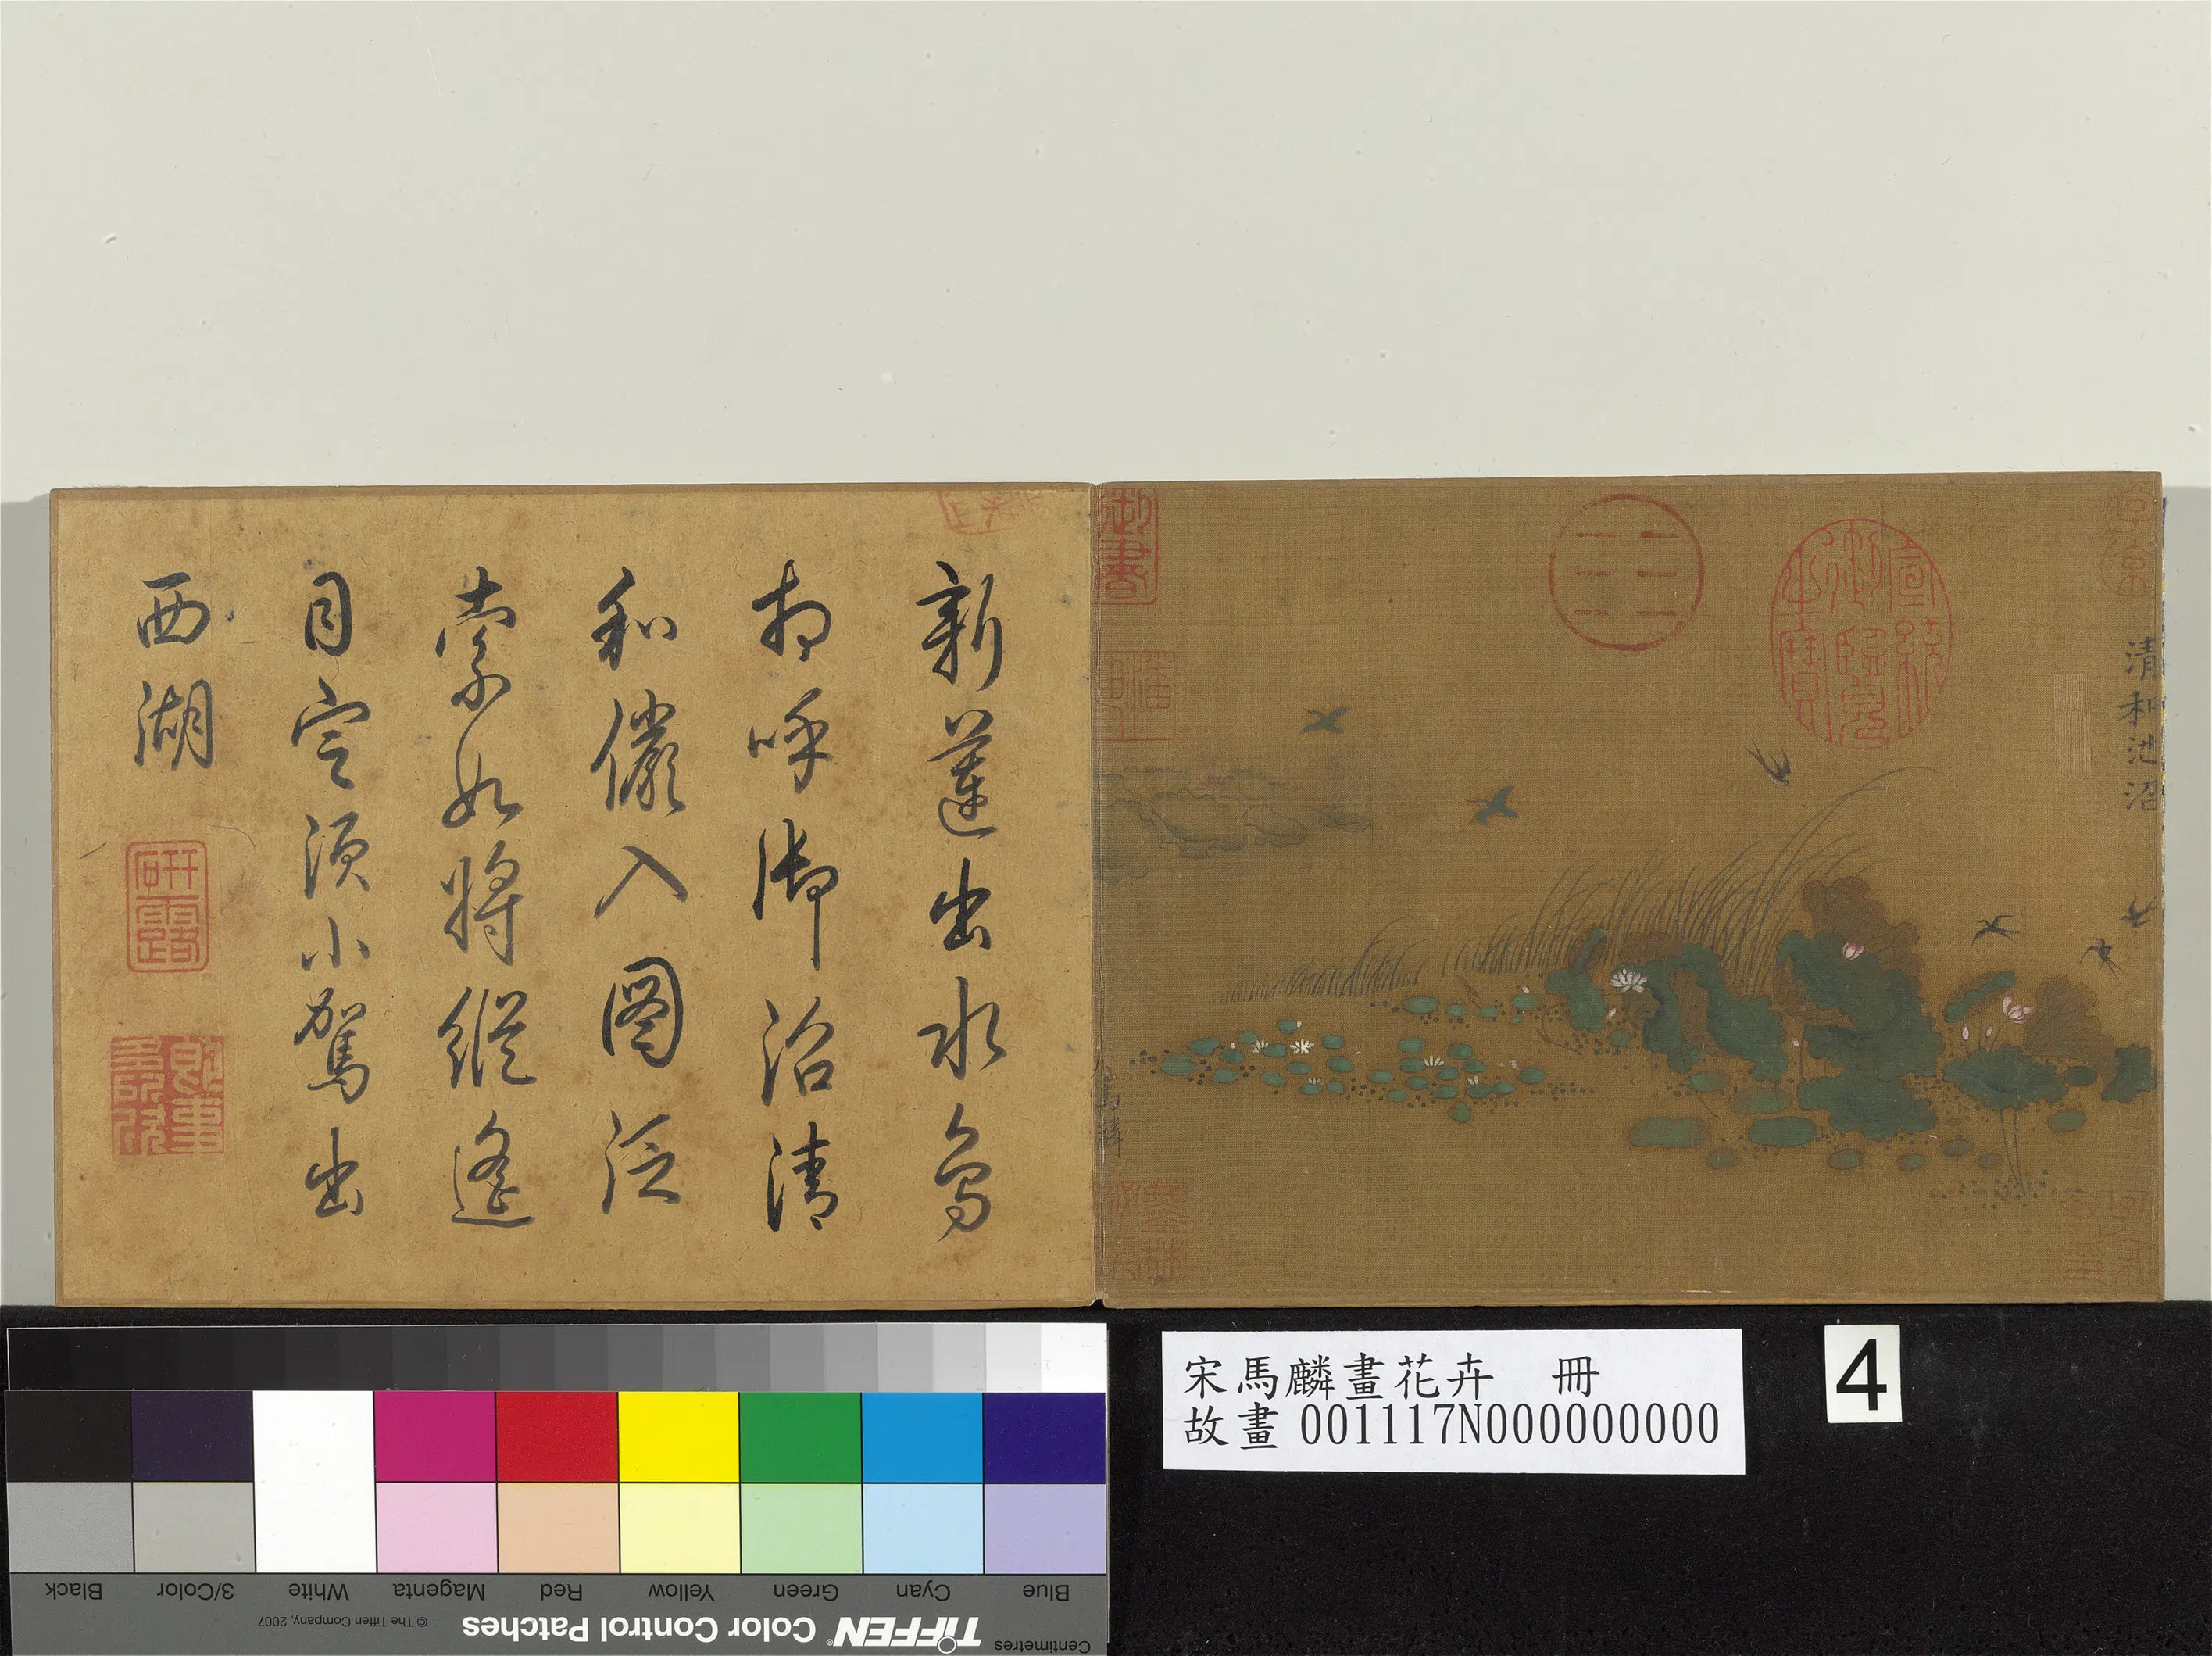 清和池沼
宣統御覽之寶
御書
新蓮出水鳥
相呼御沼清
和儼入圖泛
索如將縱遙
目定須小駕出
西湖
研露
即事多所欣
宋馬麟畫花卉 冊
故畫 001117N000000000
4
Blue
Cyan
Green
Yellow
Red
Magenta
White
3/Color
Black
Centimetres
TIFFEN® Color Control Patches
© The Tiffen Company, 2007